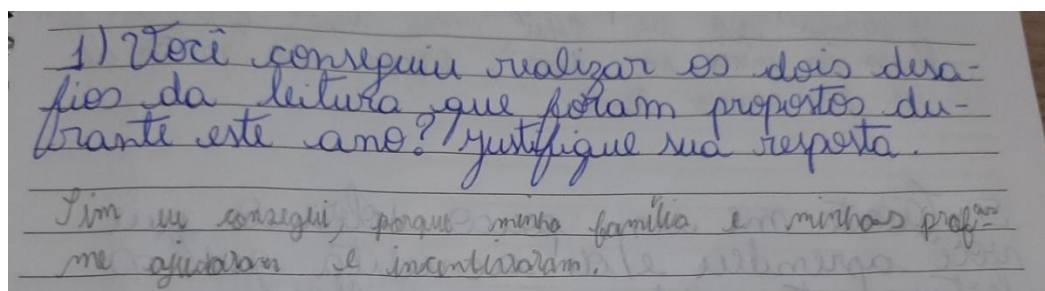 1) Você conseguiu realizar os dois desa-
fios da leitura que foram propostos du-
rante este ano? Justifique sua resposta.
Sim eu consegui, porque minha família e minhas profªs
me ajudaram e incentivaram.